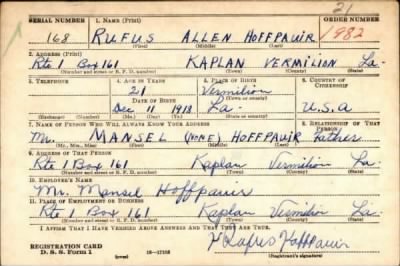 21
SERIAL NUMBER 1. NAME (Print) ORDER NUMBER
168 RUFUS ALLEN HOFFPAUIR 1982
(First) (Middle) (Last)
2. ADDRESS (Print)
Rte 1 Box 161 KAPLAN VERMILION La.
(Number and street or R. F. D. number) (Town) (County) (State)
3. TELEPHONE 4. AGE IN YEARS 5. PLACE OF BIRTH 6. COUNTRY OF CITIZENSHIP
21 Vermilion
DATE OF BIRTH (Town or county)
Dec 11 1918 La. U.S.A
(Exchange) (No.) (Mo.) (Day) (Yr.) (State or country)
7. NAME OF PERSON WHO WILL ALWAYS KNOW YOUR ADDRESS 8. RELATIONSHIP OF THAT PERSON
Mr. MANSEL (NONE) HOFFPAUIR Father
(Mr., Mrs., Miss) (First) (Middle) (Last)
9. ADDRESS OF THAT PERSON
Rte 1 Box 161 Kaplan Vermilion La.
(Number and street or R. F. D. number) (Town) (County) (State)
10. EMPLOYER'S NAME
Mr. Mansel Hoffpauir
11. PLACE OF EMPLOYMENT OR BUSINESS
Rte 1 Box 161 Kaplan Vermilion La.
(Number and street or R. F. D. number) (Town) (County) (State)
I AFFIRM THAT I HAVE VERIFIED ABOVE ANSWERS AND THAT THEY ARE TRUE.
REGISTRATION CARD
D. S. S. Form 1 Rufus Hoffpauir
(Registrant's signature)